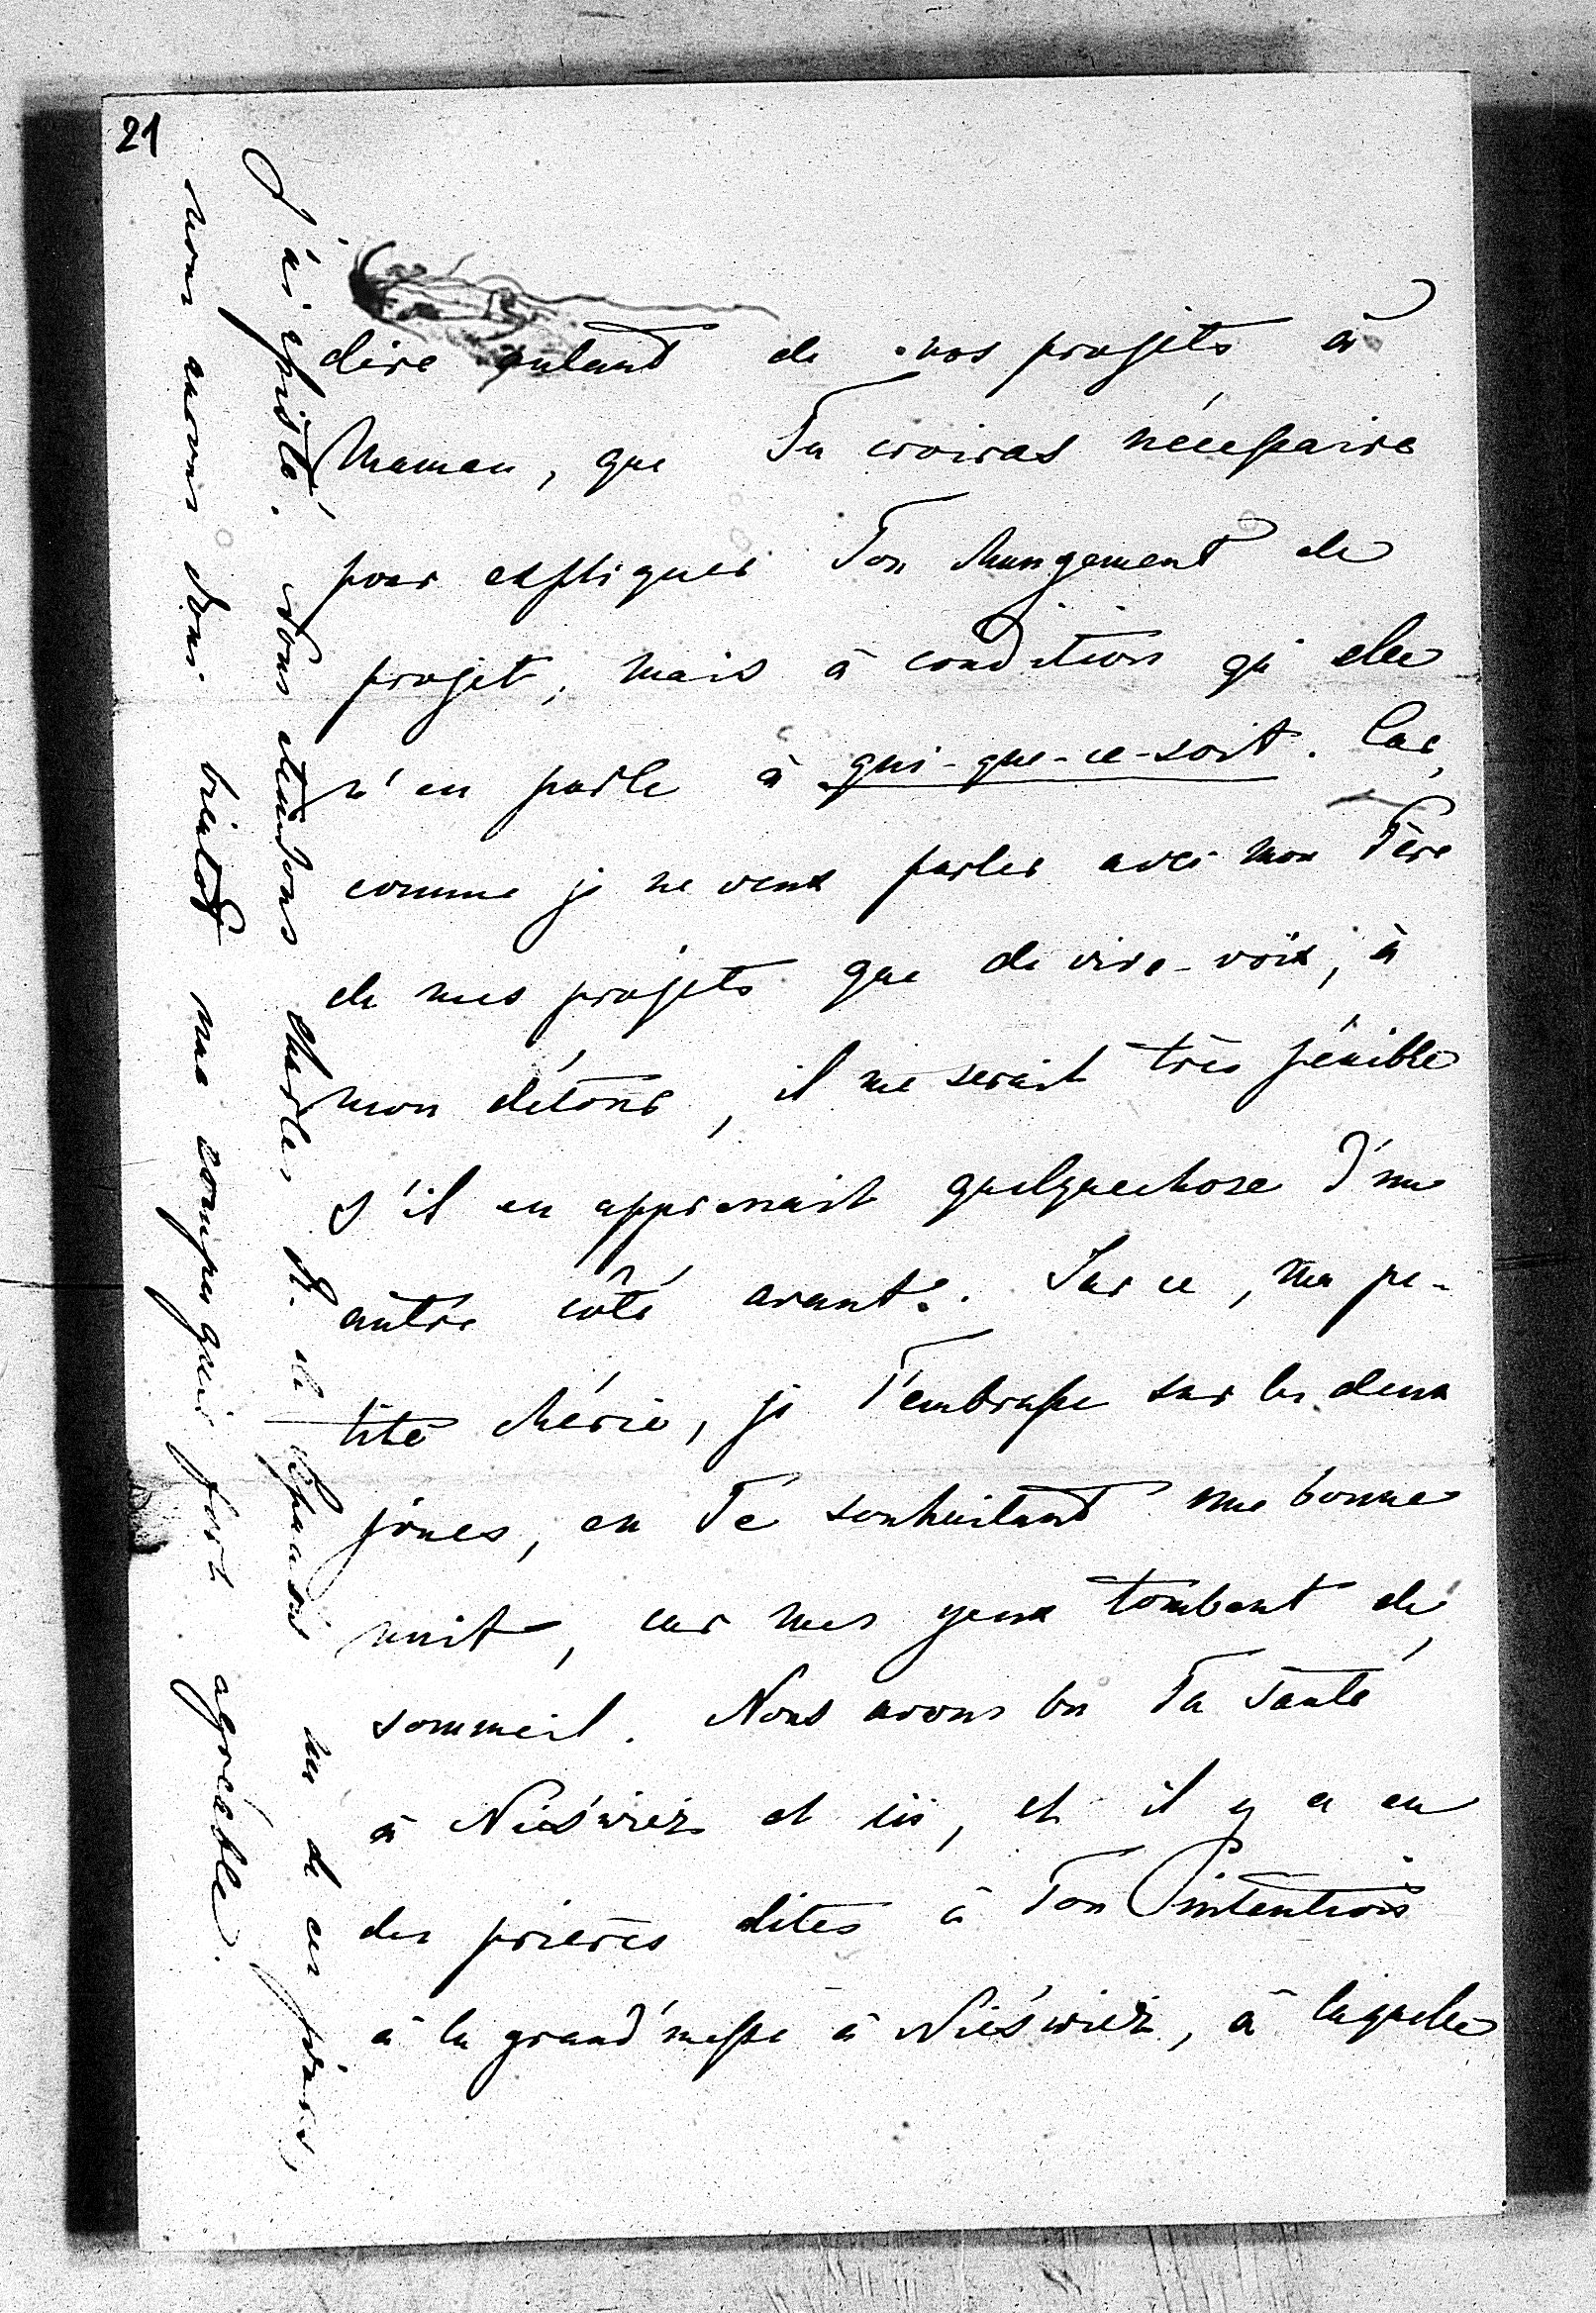 21
dire autant de nos projets à
Maman, que Tu croiras nécessaire
pour expliquer Ton changement de
projet, mais à condition qu'elle
n'en parle à qui-que-ce-soit. Car,
comme je ne veux parler avec mon Père
de mes projets que de vive-voix, à
mon rétour, il me serait très pénible
s'il en apprenait quelquechose d'une
autre côté avant. Sur ce, ma pe-
tite chérie, je T'embrasse sur les deux
joues, en Te souhaitant une bonne
nuit, car mes yeux tombent de
sommeil. Nous avons bu Ta santé
à Nieśwież et ici, et il y a eu
des prières dites à Ton intention
à la grand'messe à Nieśwież, à laquelle
j'ai assisté. Nous attendons Charles R. de un de ces jours,
nous aurons donc bientôt une compagnie fort agréable.